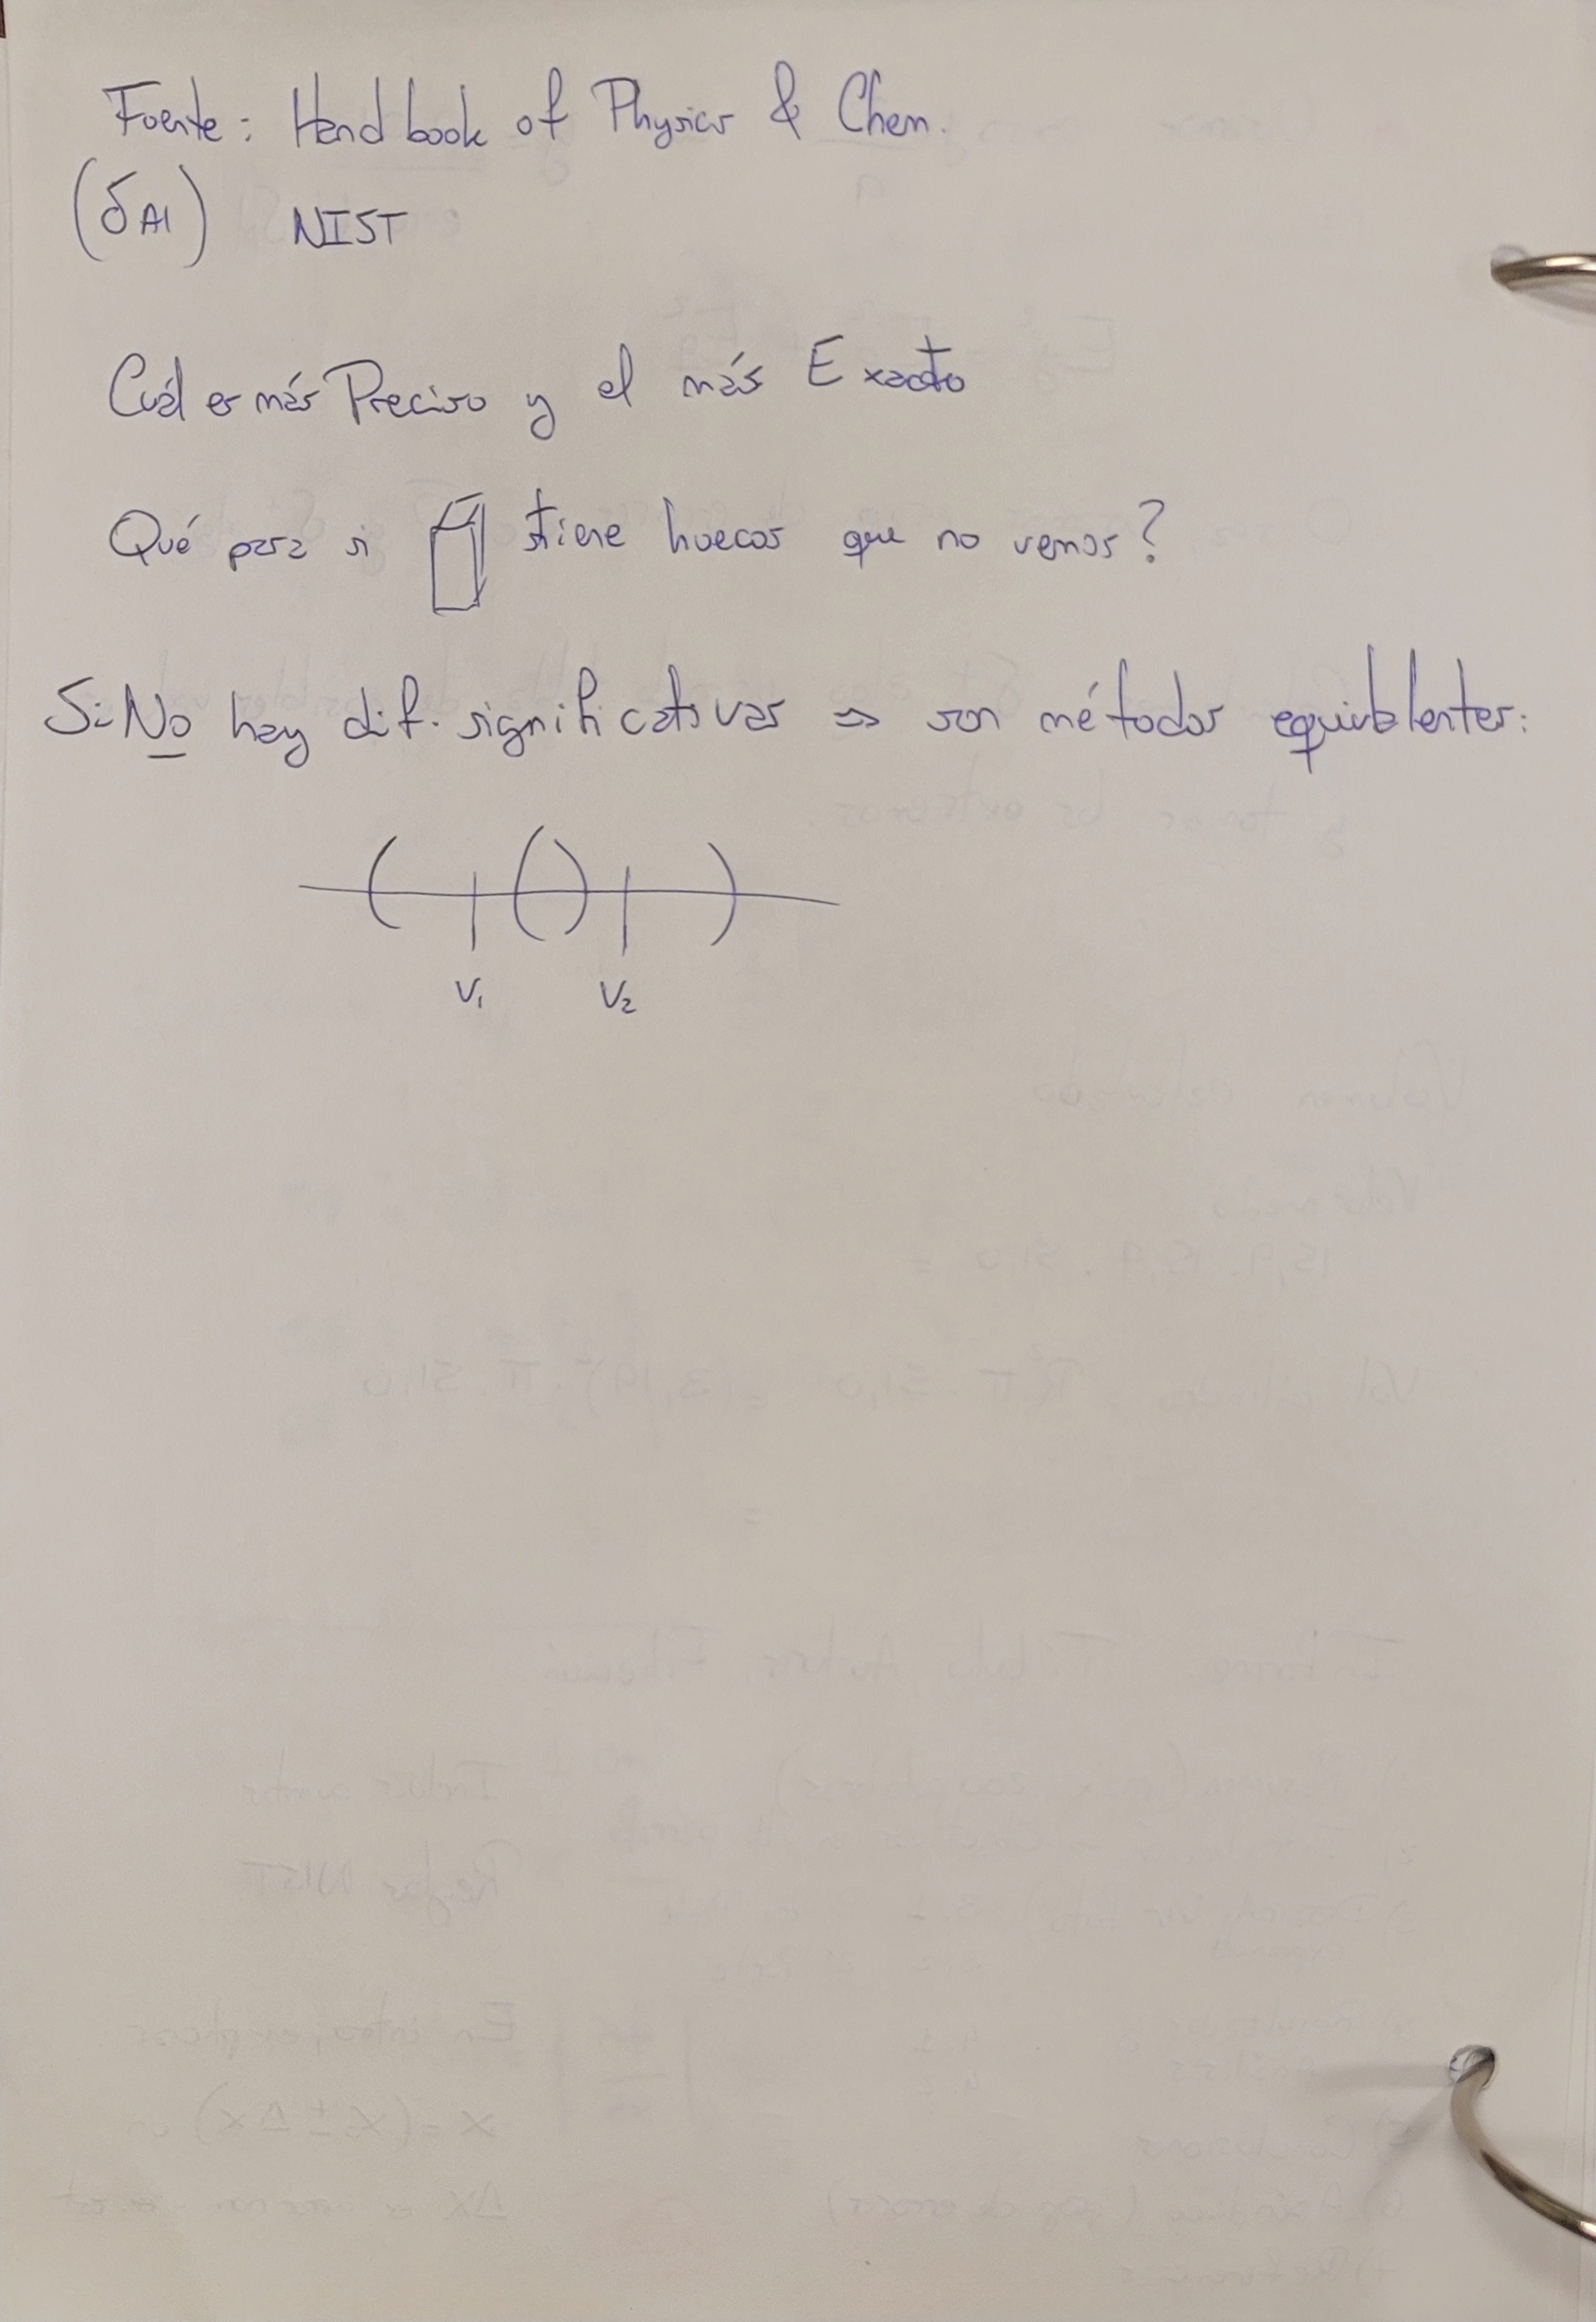 Fuente: Handbook of Physics & Chem.
(δAl) NIST
Cuál es más Preciso y el más Exacto
Qué pasa si tiene huecos que no vemos?
Si No hay dif. significativas => son métodos equivalentes:
( | ( ) | )
V1 V2